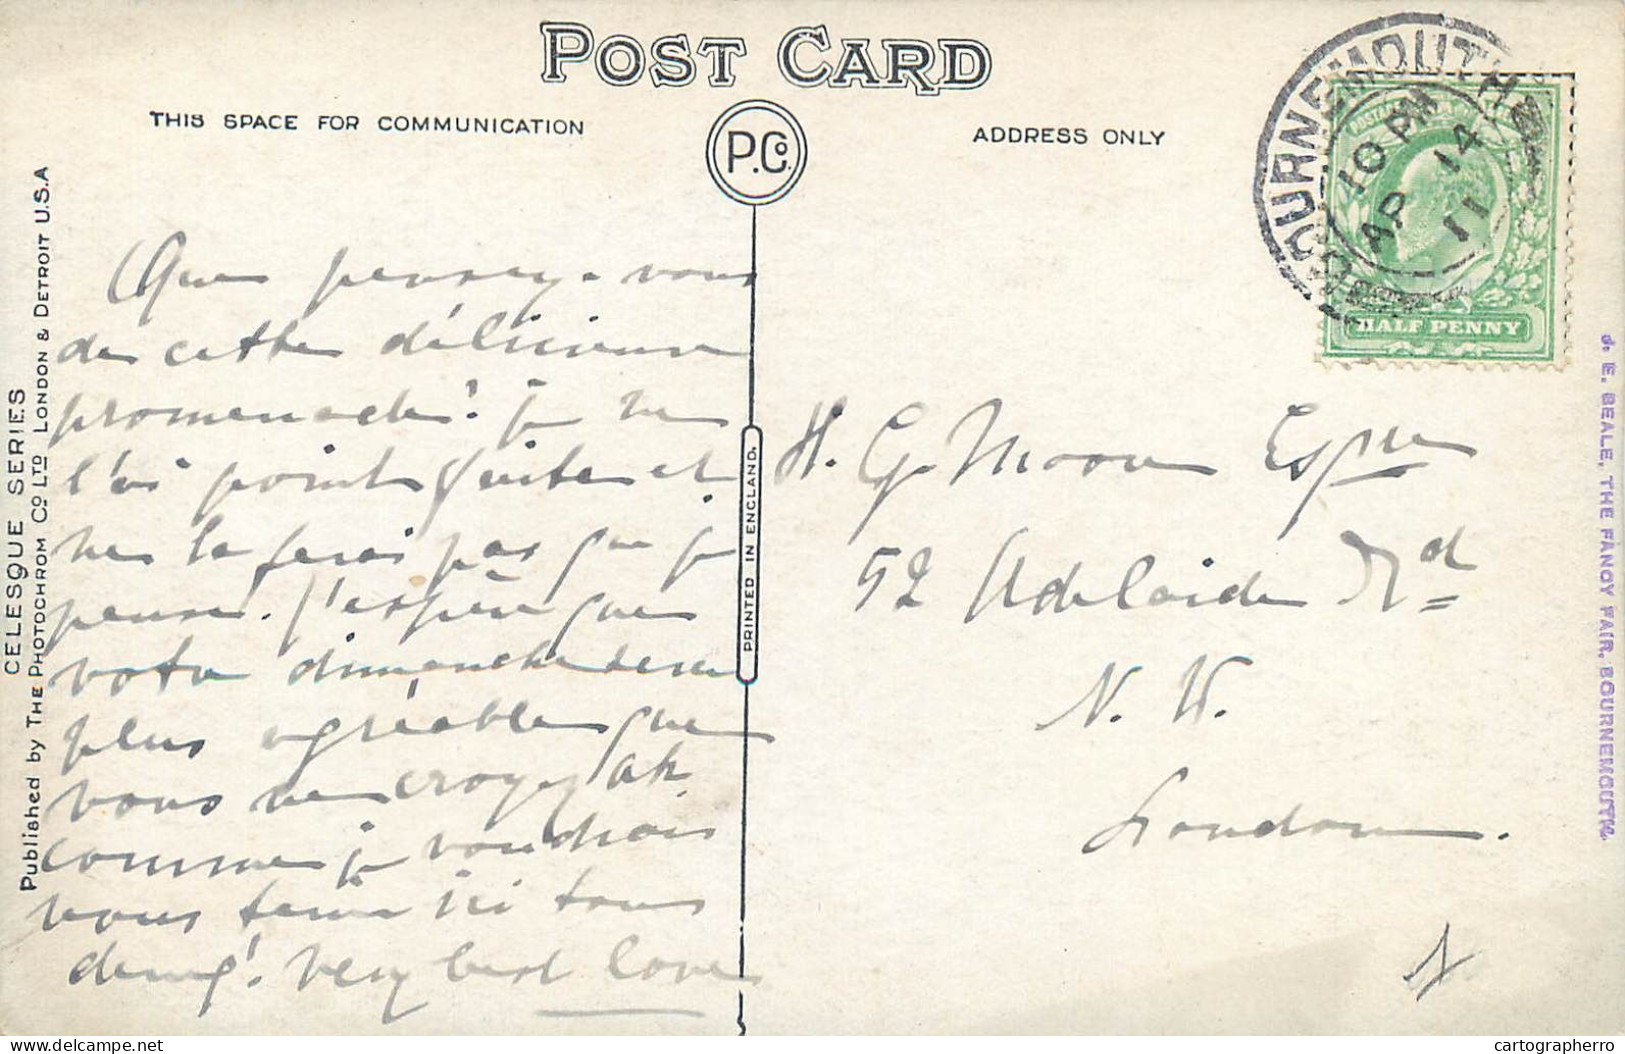 POST CARD
THIS SPACE FOR COMMUNICATION
P. Co.
ADDRESS ONLY
BOURNEMOUTH
10 PM
AP 14
11
POSTAGE
HALF PENNY
CELESQUE SERIES
Published by THE PHOTOCHROM CO LTD LONDON & DETROIT U.S.A
PRINTED IN ENGLAND.
J. E. BEALE, THE FANCY FAIR, BOURNEMOUTH.
Que pensez-vous
de cette délicieuse
promenade? je ne
l'ai point faite et
ne la ferai pas que je
pense. J'espère que
votre dimanche sera
plus agréable que
vous ne croyez! ah,
comme je voudrais
vous tenir ici tous
deux! Very best love
H. G. Moore Esqre
52 Adelaide Rd
N. W.
London.
Delcampe.net
cartographerro